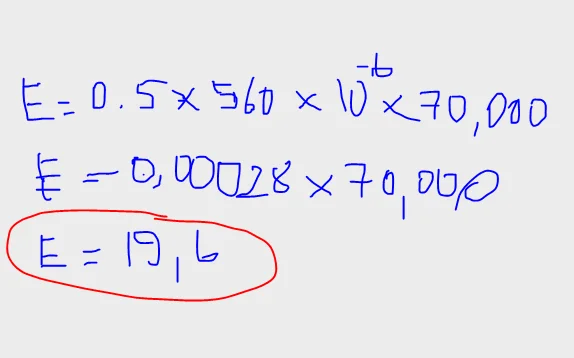 E = 0.5 × 560 × 10⁻⁶ × 70,000
E = 0,00028 × 70,000
E = 19,6